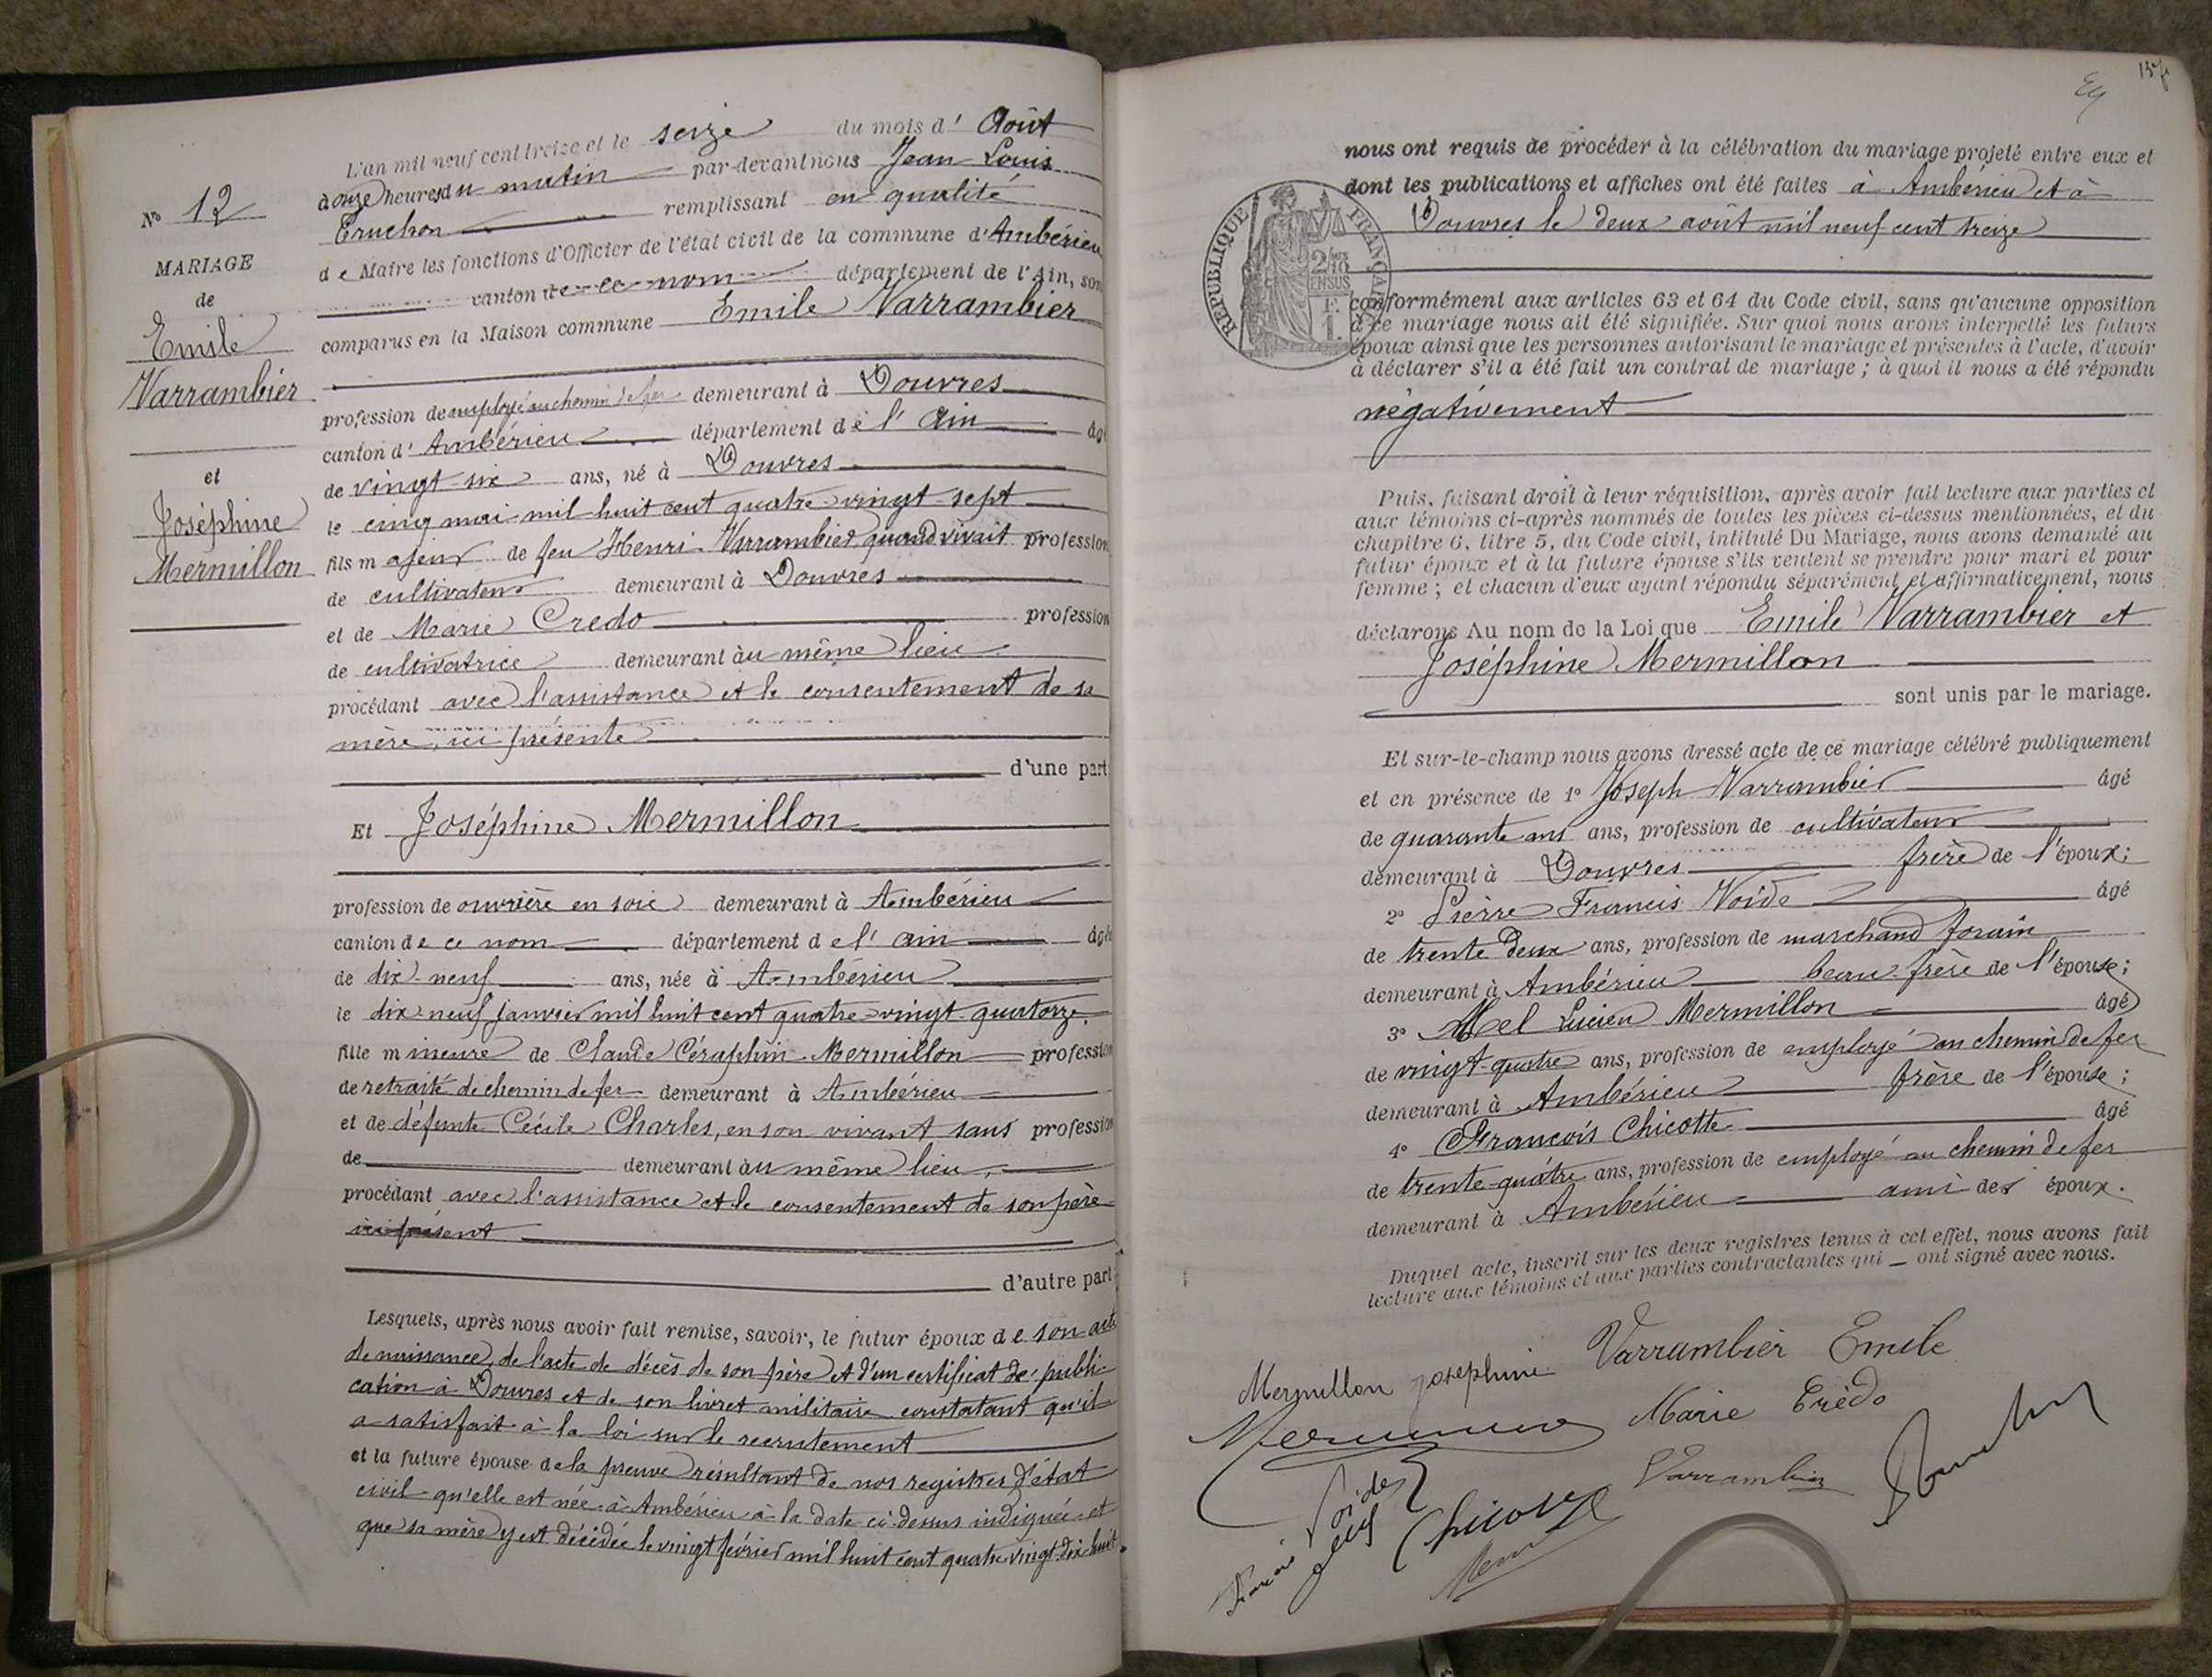 L'an mil neuf cent treize et le seize du mois d'Août
à onze heures du matin par-devant nous Jean Louis
Truchon remplissant en qualité
de Maire les fonctions d'Officier de l'état civil de la commune d'Ambérieu
canton de ce nom département de l'Ain, son
comparus en la Maison commune Emile Varrambier
profession de employé au chemin de fer demeurant à Douvres
canton d'Ambérieu département de l'Ain âgé
de vingt-six ans, né à Douvres
le cinq mai mil huit cent quatre-vingt-sept
fils majeur de feu Henri Varrambier quand vivait profession
de cultivateur demeurant à Douvres
et de Marie Credo profession
de cultivatrice demeurant au même lieu
procédant avec l'assistance et le consentement de sa
mère, ici présente
d'une part
Et Joséphine Mermillon
profession de ouvrière en soie demeurant à Ambérieu
canton de ce nom département de l'Ain âgée
de dix-neuf ans, née à Ambérieu
le dix-neuf janvier mil huit cent quatre-vingt-quatorze,
fille mineure de Claude Céraphin Mermillon profession
de retraité de chemin de fer demeurant à Ambérieu
et de défunte Cécile Charles, en son vivant sans profession
de demeurant au même lieu,
procédant avec l'assistance et le consentement de son père
ici présent
d'autre part
Lesquels, après nous avoir fait remise, savoir, le futur époux de son acte
de naissance, de l'acte de décès de son père et d'un certificat de publi-
cation à Douvres et de son livret militaire constatant qu'il
a satisfait à la loi sur le recrutement
et la future épouse de la preuve résultant de nos registres d'état
civil qu'elle est née à Ambérieu à la date ci-dessus indiquée et
que sa mère y est décédée le vingt février mil huit cent quatre-vingt-dix-huit.
No 12
MARIAGE
de
Emile
Varrambier
et
Joséphine
Mermillon
137
nous ont requis de procéder à la célébration du mariage projeté entre eux et
dont les publications et affiches ont été faites à Ambérieu et à
Douvres le deux août mil neuf cent treize
REPUBLIQUE FRANÇAISE
2/10
EN SUS
1 F.
conformément aux articles 63 et 64 du Code civil, sans qu'aucune opposition
à ce mariage nous ait été signifiée. Sur quoi nous avons interpellé les futurs
époux ainsi que les personnes autorisant le mariage et présentes à l'acte, d'avoir
à déclarer s'il a été fait un contrat de mariage ; à quoi il nous a été répondu
négativement
Puis, faisant droit à leur réquisition, après avoir fait lecture aux parties et
aux témoins ci-après nommés de toutes les pièces ci-dessus mentionnées, et du
chapitre 6, titre 5, du Code civil, intitulé Du Mariage, nous avons demandé au
futur époux et à la future épouse s'ils veulent se prendre pour mari et pour
femme ; et chacun d'eux ayant répondu séparément et affirmativement, nous
déclarons Au nom de la Loi que Emile Varrambier et
Joséphine Mermillon
sont unis par le mariage.
Et sur-le-champ nous avons dressé acte de ce mariage célébré publiquement
et en présence de 1° Joseph Varrambier âgé
de quarante ans ans, profession de cultivateur
demeurant à Douvres frère de l'époux ;
2° Pierre Francis Voide âgé
de trente deux ans, profession de marchand forain
demeurant à Ambérieu beau-frère de l'épouse ;
3° Lucien Mermillon âgé
de vingt-quatre ans, profession de employé au chemin de fer
demeurant à Ambérieu frère de l'épouse ;
4° François Chicotte âgé
de trente-quatre ans, profession de employé au chemin de fer
demeurant à Ambérieu ami des époux.
Duquel acte, inscrit sur les deux registres tenus à cet effet, nous avons fait
lecture aux témoins et aux parties contractantes qui ont signé avec nous.
Mermillon Josephine Varrambier Emile
Marie Crédo
Varrambier
Voide
Chicotte